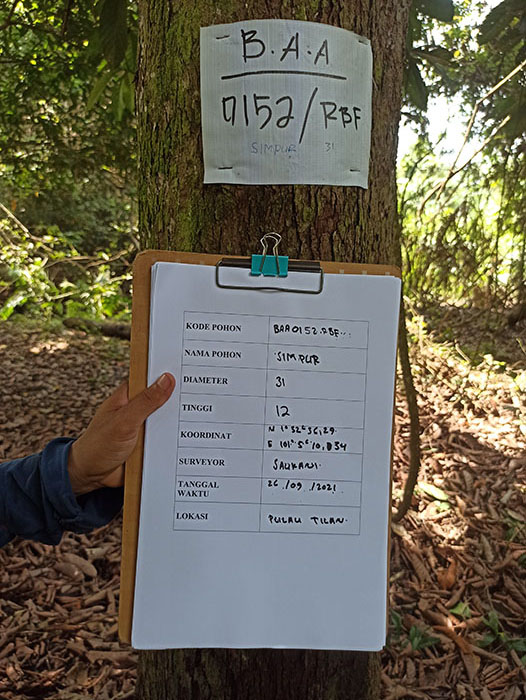 B.A.A
0152/RBF
SIMPUR 31
KODE POHON BAA0152.RBF...
NAMA POHON SIMPUR
DIAMETER 31
TINGGI 12
KOORDINAT N 1°52'36,29.
E 101° 5' 10,834
SURVEYOR SAUKANI.
TANGGAL WAKTU 26 /09 /2021
LOKASI PULAU TILAN.